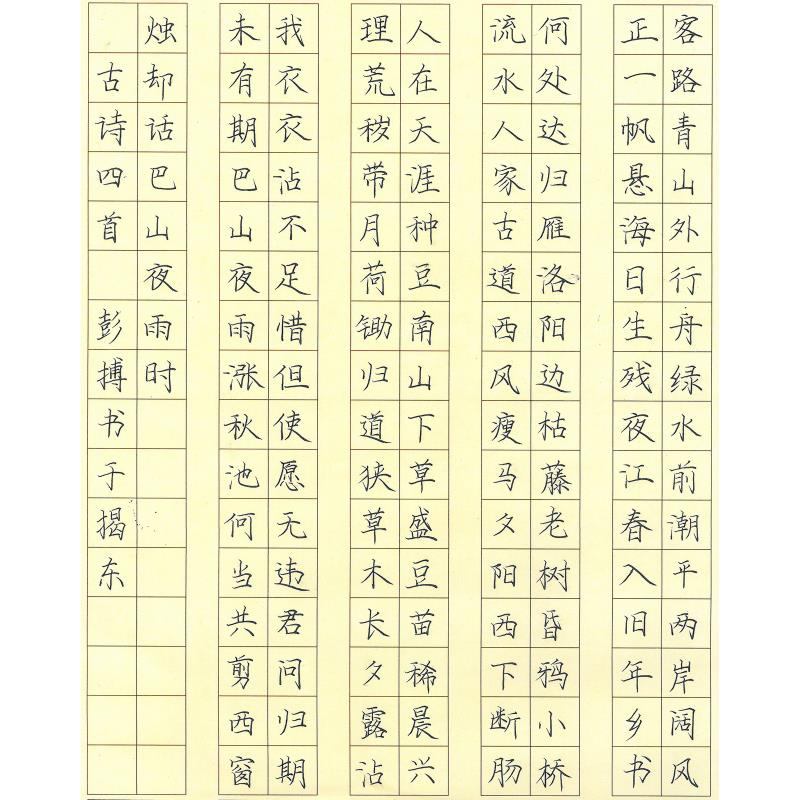 客路青山外行舟绿水前潮平两岸阔风
正一帆悬海日生残夜江春入旧年乡书
何处达归雁洛阳边枯藤老树昏鸦小桥
流水人家古道西风瘦马夕阳西下断肠
人在天涯种豆南山下草盛豆苗稀晨兴
理荒秽带月荷锄归道狭草木长夕露沾
我衣衣沾不足惜但使愿无违君问归期
未有期巴山夜雨涨秋池何当共剪西窗
烛却话巴山夜雨时
古诗四首 彭搏书于揭东